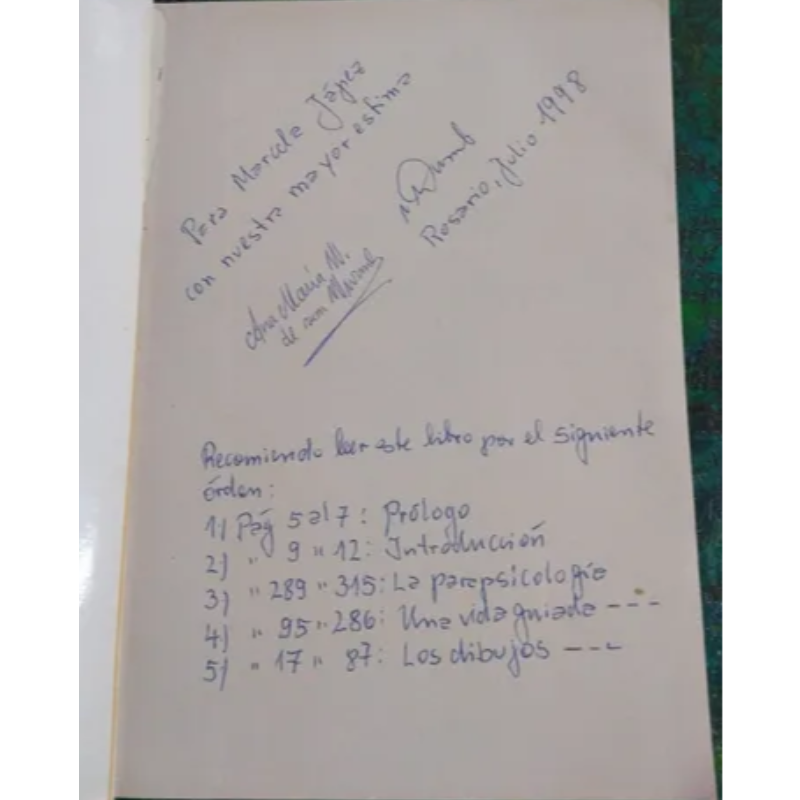 Para Marcela Jápez
con nuestra mayor estima
Rosario, Julio 1998
Ana María W.
de
Recomiendo leer este libro por el siguiente
órden:
1) Pág 5 al 7: Prólogo
2) " 9 " 12: Introducción
3) " 289 " 315: La parapsicología
4) " 95 " 286: Una vida guiada ---
5) " 17 " 87: Los dibujos ---